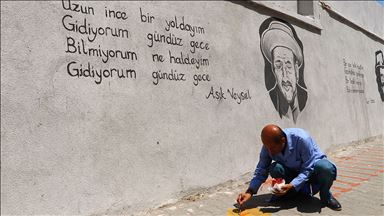 Uzun ince bir yoldayım
Gidiyorum gündüz gece
Bilmiyorum ne haldeyim
Gidiyorum gündüz gece
Aşık Veysel